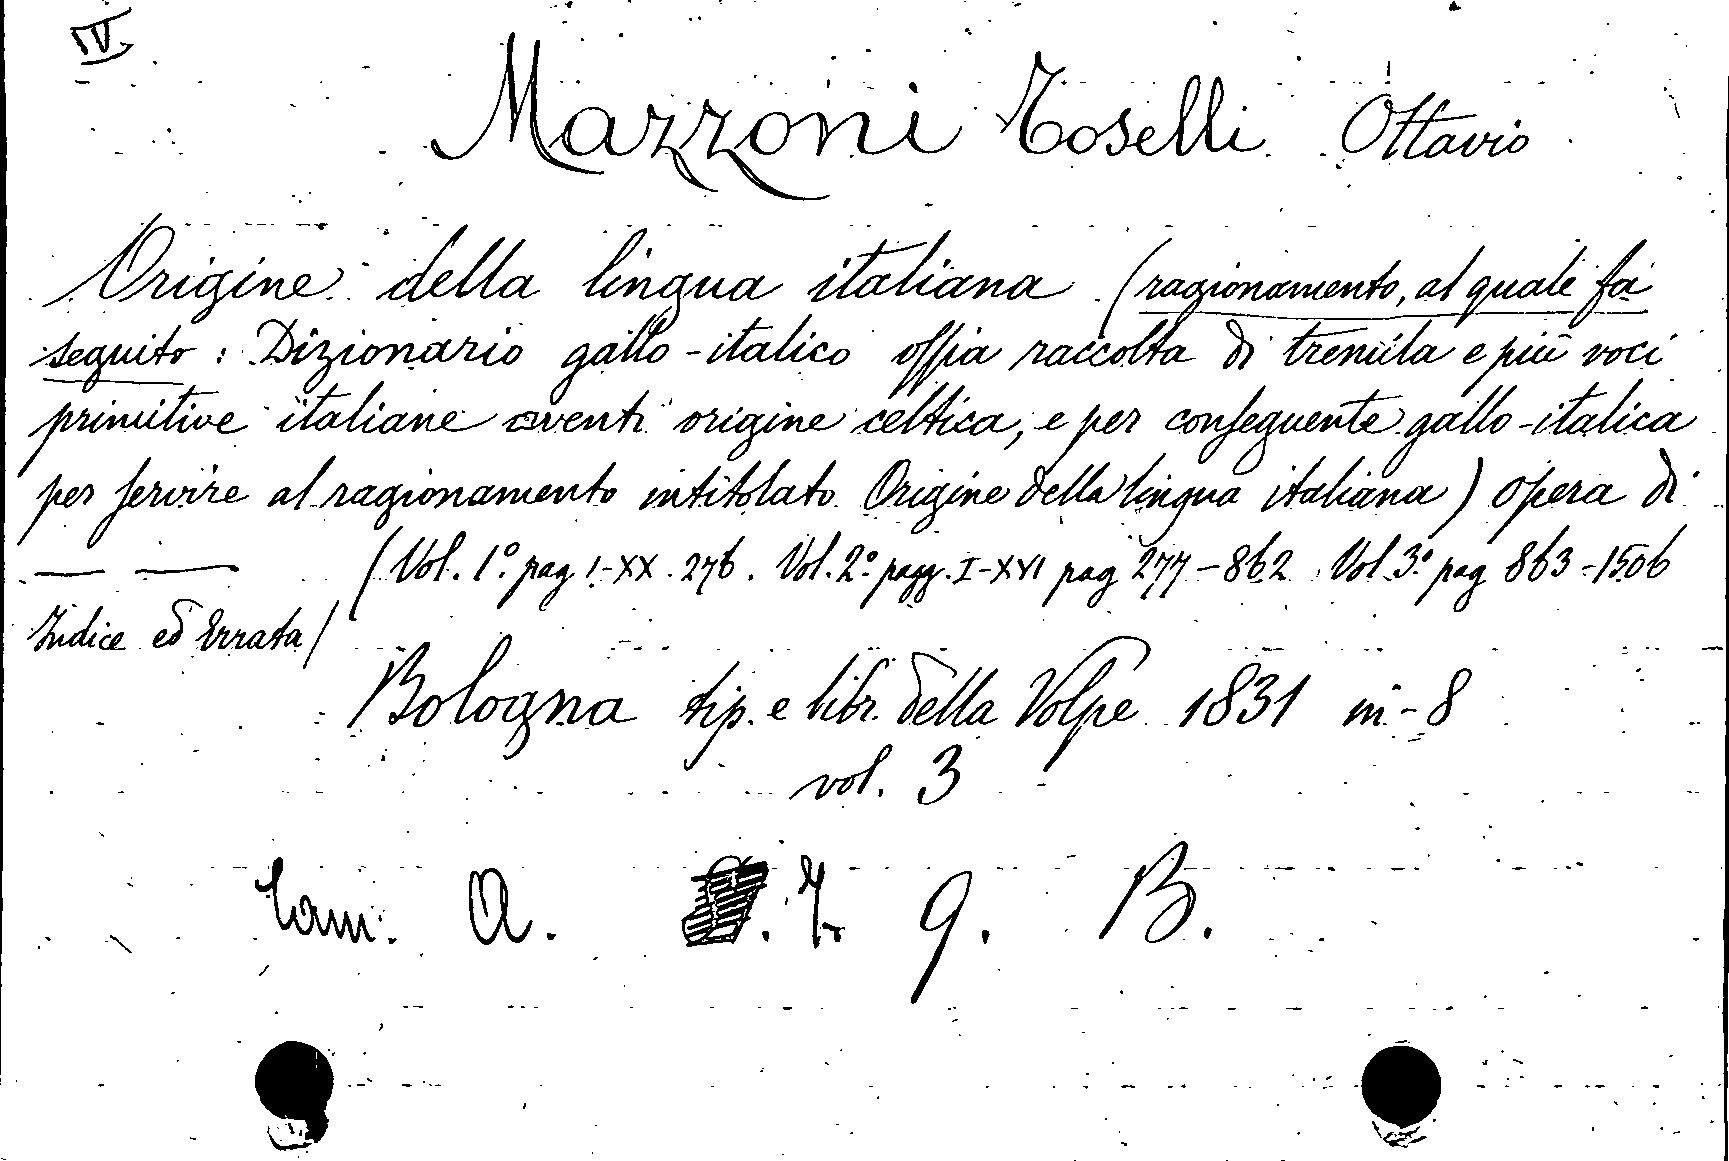 IV
Mazzoni Toselli Ottavio
Origine della lingua italiana (ragionamento, al quale fa
seguito: Dizionario gallo-italico ossia raccolta di tremila e più voci
primitive italiane aventi origine celtica, e per conseguente gallo-italica
per servire al ragionamento intitolato Origine della lingua italiana) opera di
— — (Vol. 1º. pag I-XX. 276. Vol. 2º. pagg. I-XVI pag 277-862 Vol. 3º pag 863-1506
Indice ed Errata)
Bologna tip. e libr. della Volpe 1831 in-8
vol. 3
Cam. A. 9. B.